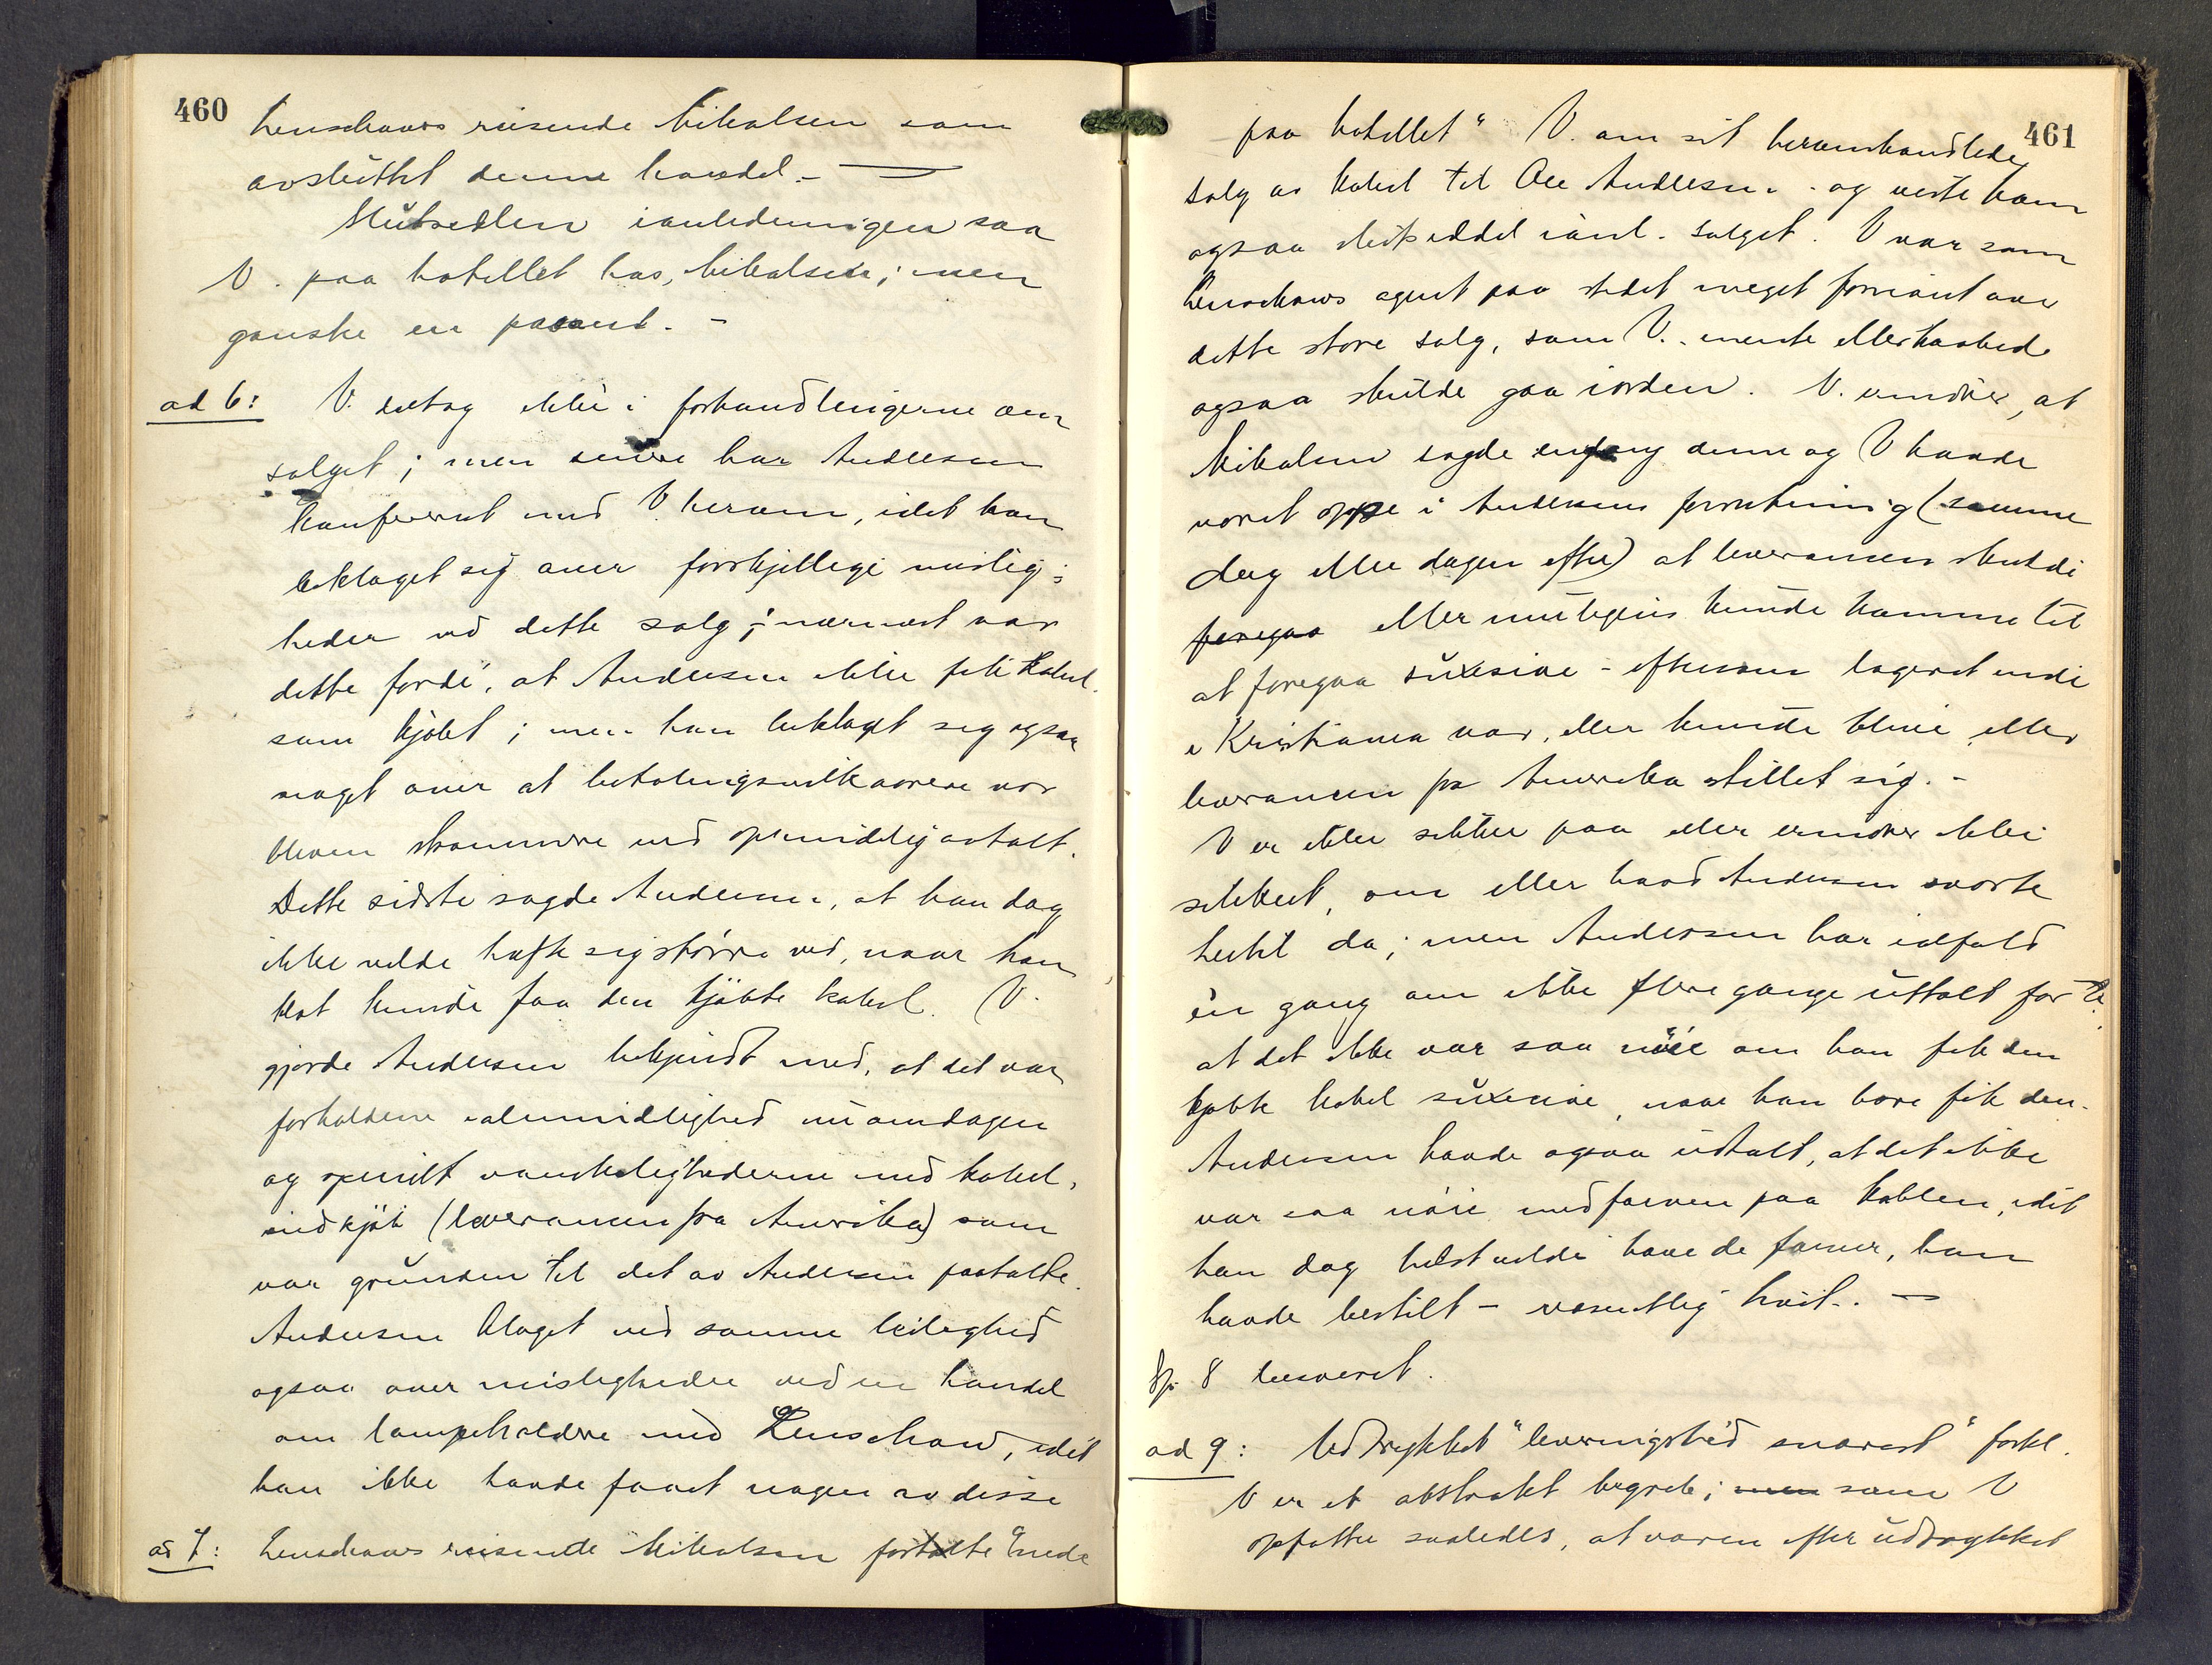 460
Lenschows reisende Mikalsen som
avsluttet denne handel. –
Slutsedlen i anledningen saa
V. paa hotellet hos Mikalsen; men
ganske en passant. –
ad 6: V. deltog ikke i forhandlingerne om
salget; men senere har Andersen
konfereret med V. herom, idet han
beklaget sig over forskjellige mislig-
heder ved dette salg; nærmest var
dette fordi, at Andersen ikke fik kabel
som kjøbt; men han beklaget sig ogsaa
noget over at betalingsvilkaarene var
bleven strammere end oprindelig avtalt.
Dette sidste sagde Andersen, at han dog
ikke vilde hefte sig større ved, naar han
blot kunde faa den kjøbte kabel. (V.
gjorde Andersen bekjendt med, at det var
forholdene i almindelighed nu om dagen
og specielt vanskelighederne med kabel-
indkjøb (leverancen fra Amerika) som
var grunden til det av Andersen paatalte.
Andersen klaget ved samme leilighed
ogsaa over misligheder ved en handel
om lampeholdere med Lenschow, idet
han ikke havde faaet nogen av disse
ad 7: Lenschows reisende Mikalsen fortalte "nede
461
paa hotellet" V. om sit heromhandlede
salg av kabel til Ole Andersen – og viste ham
ogsaa slutseddel i anl. salget. V var som
Lenschows agent paa stedet meget fornøiet over
dette store salg, som V. mente eller haabede
ogsaa skulde gaa i orden. V. erindrer, at
Mikalsen sagde engang denne og V havde
været oppe i Andersens forretning (samme
dag eller dagen efter) at leverancen skulde
foregaa eller muligens kunde komme til
at foregaa suxesive – eftersom lageret inde
i Kristiania var, eller kunde blive, eller
leverancen fra Amerika stillet sig. –
V er ikke sikker paa eller erindrer ikke
sikkert, om eller hvad Andersen svarte
hertil da; men Andersen har ialfald
én gang om ikke flere gange uttalt for V.
at det ikke var saa nøie om han fik den
kjøbte kabel suxesive, naar han bare fik den.
Andersen havde ogsaa udtalt, at det ikke
var saa nøie med farven paa kablen, idet
han dog helst vilde have de farver, han
havde bestilt – væsentlig hvit. –
Sp. 8 besvaret.
ad 9: Udtrykket "leveringstid snarest" forkl.
V er et abstrakt begreb; men som V
opfatter saaledes, at varen efter udtrykket